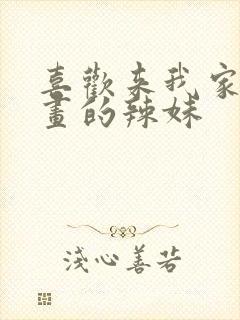 喜歡来我家
畫的辣妹
淺心善若